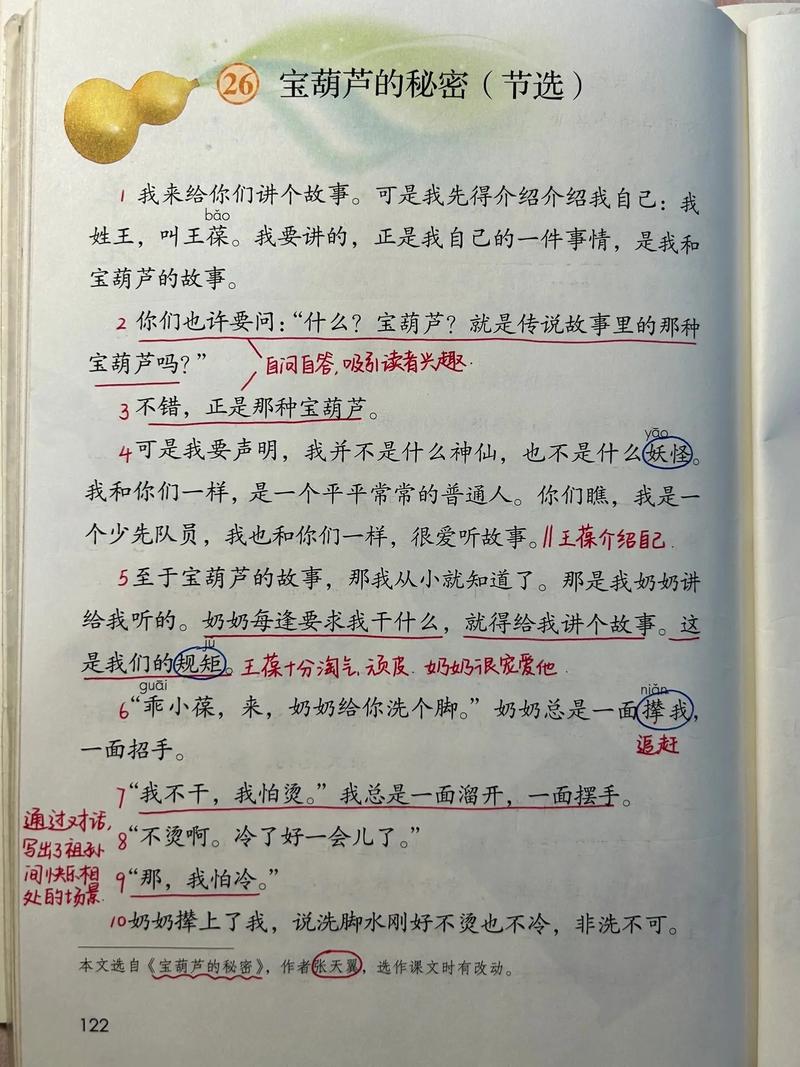 26 宝葫芦的秘密（节选）
1 我来给你们讲个故事。可是我先得介绍介绍我自己：我
bǎo
姓王，叫王葆。我要讲的，正是我自己的一件事情，是我和
宝葫芦的故事。
2 你们也许要问：“什么？宝葫芦？就是传说故事里的那种
宝葫芦吗？”
自问自答，吸引读者兴趣.
3 不错，正是那种宝葫芦。
yāo
4 可是我要声明，我并不是什么神仙，也不是什么妖怪。
我和你们一样，是一个平平常常的普通人。你们瞧，我是一
个少先队员，我也和你们一样，很爱听故事。 || 王葆介绍自己.
5 至于宝葫芦的故事，那我从小就知道了。那是我奶奶讲
给我听的。奶奶每逢要求我干什么，就得给我讲个故事。这
jǔ
是我们的规矩。 王葆十分淘气，顽皮. 奶奶很宠爱他.
guāi niǎn
6 “乖小葆，来，奶奶给你洗个脚。”奶奶总是一面撵我，
追赶
一面招手。
7 “我不干，我怕烫。”我总是一面溜开，一面摆手。
通过对话，
写出了祖孙
间快乐相
处的场景.
8 “不烫啊。冷了好一会儿了。”
9 “那，我怕冷。”
10 奶奶撵上了我，说洗脚水刚好不烫也不冷，非洗不可。
本文选自《宝葫芦的秘密》，作者张天翼，选作课文时有改动。
122